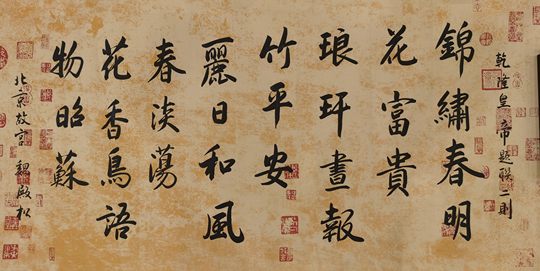 乾隆皇帝題聯二則
錦繡春明
花富貴
琅玕晝報
竹平安
麗日和風
春淡蕩
花香鳥語
物昭蘇
北京故宫 魏殿松